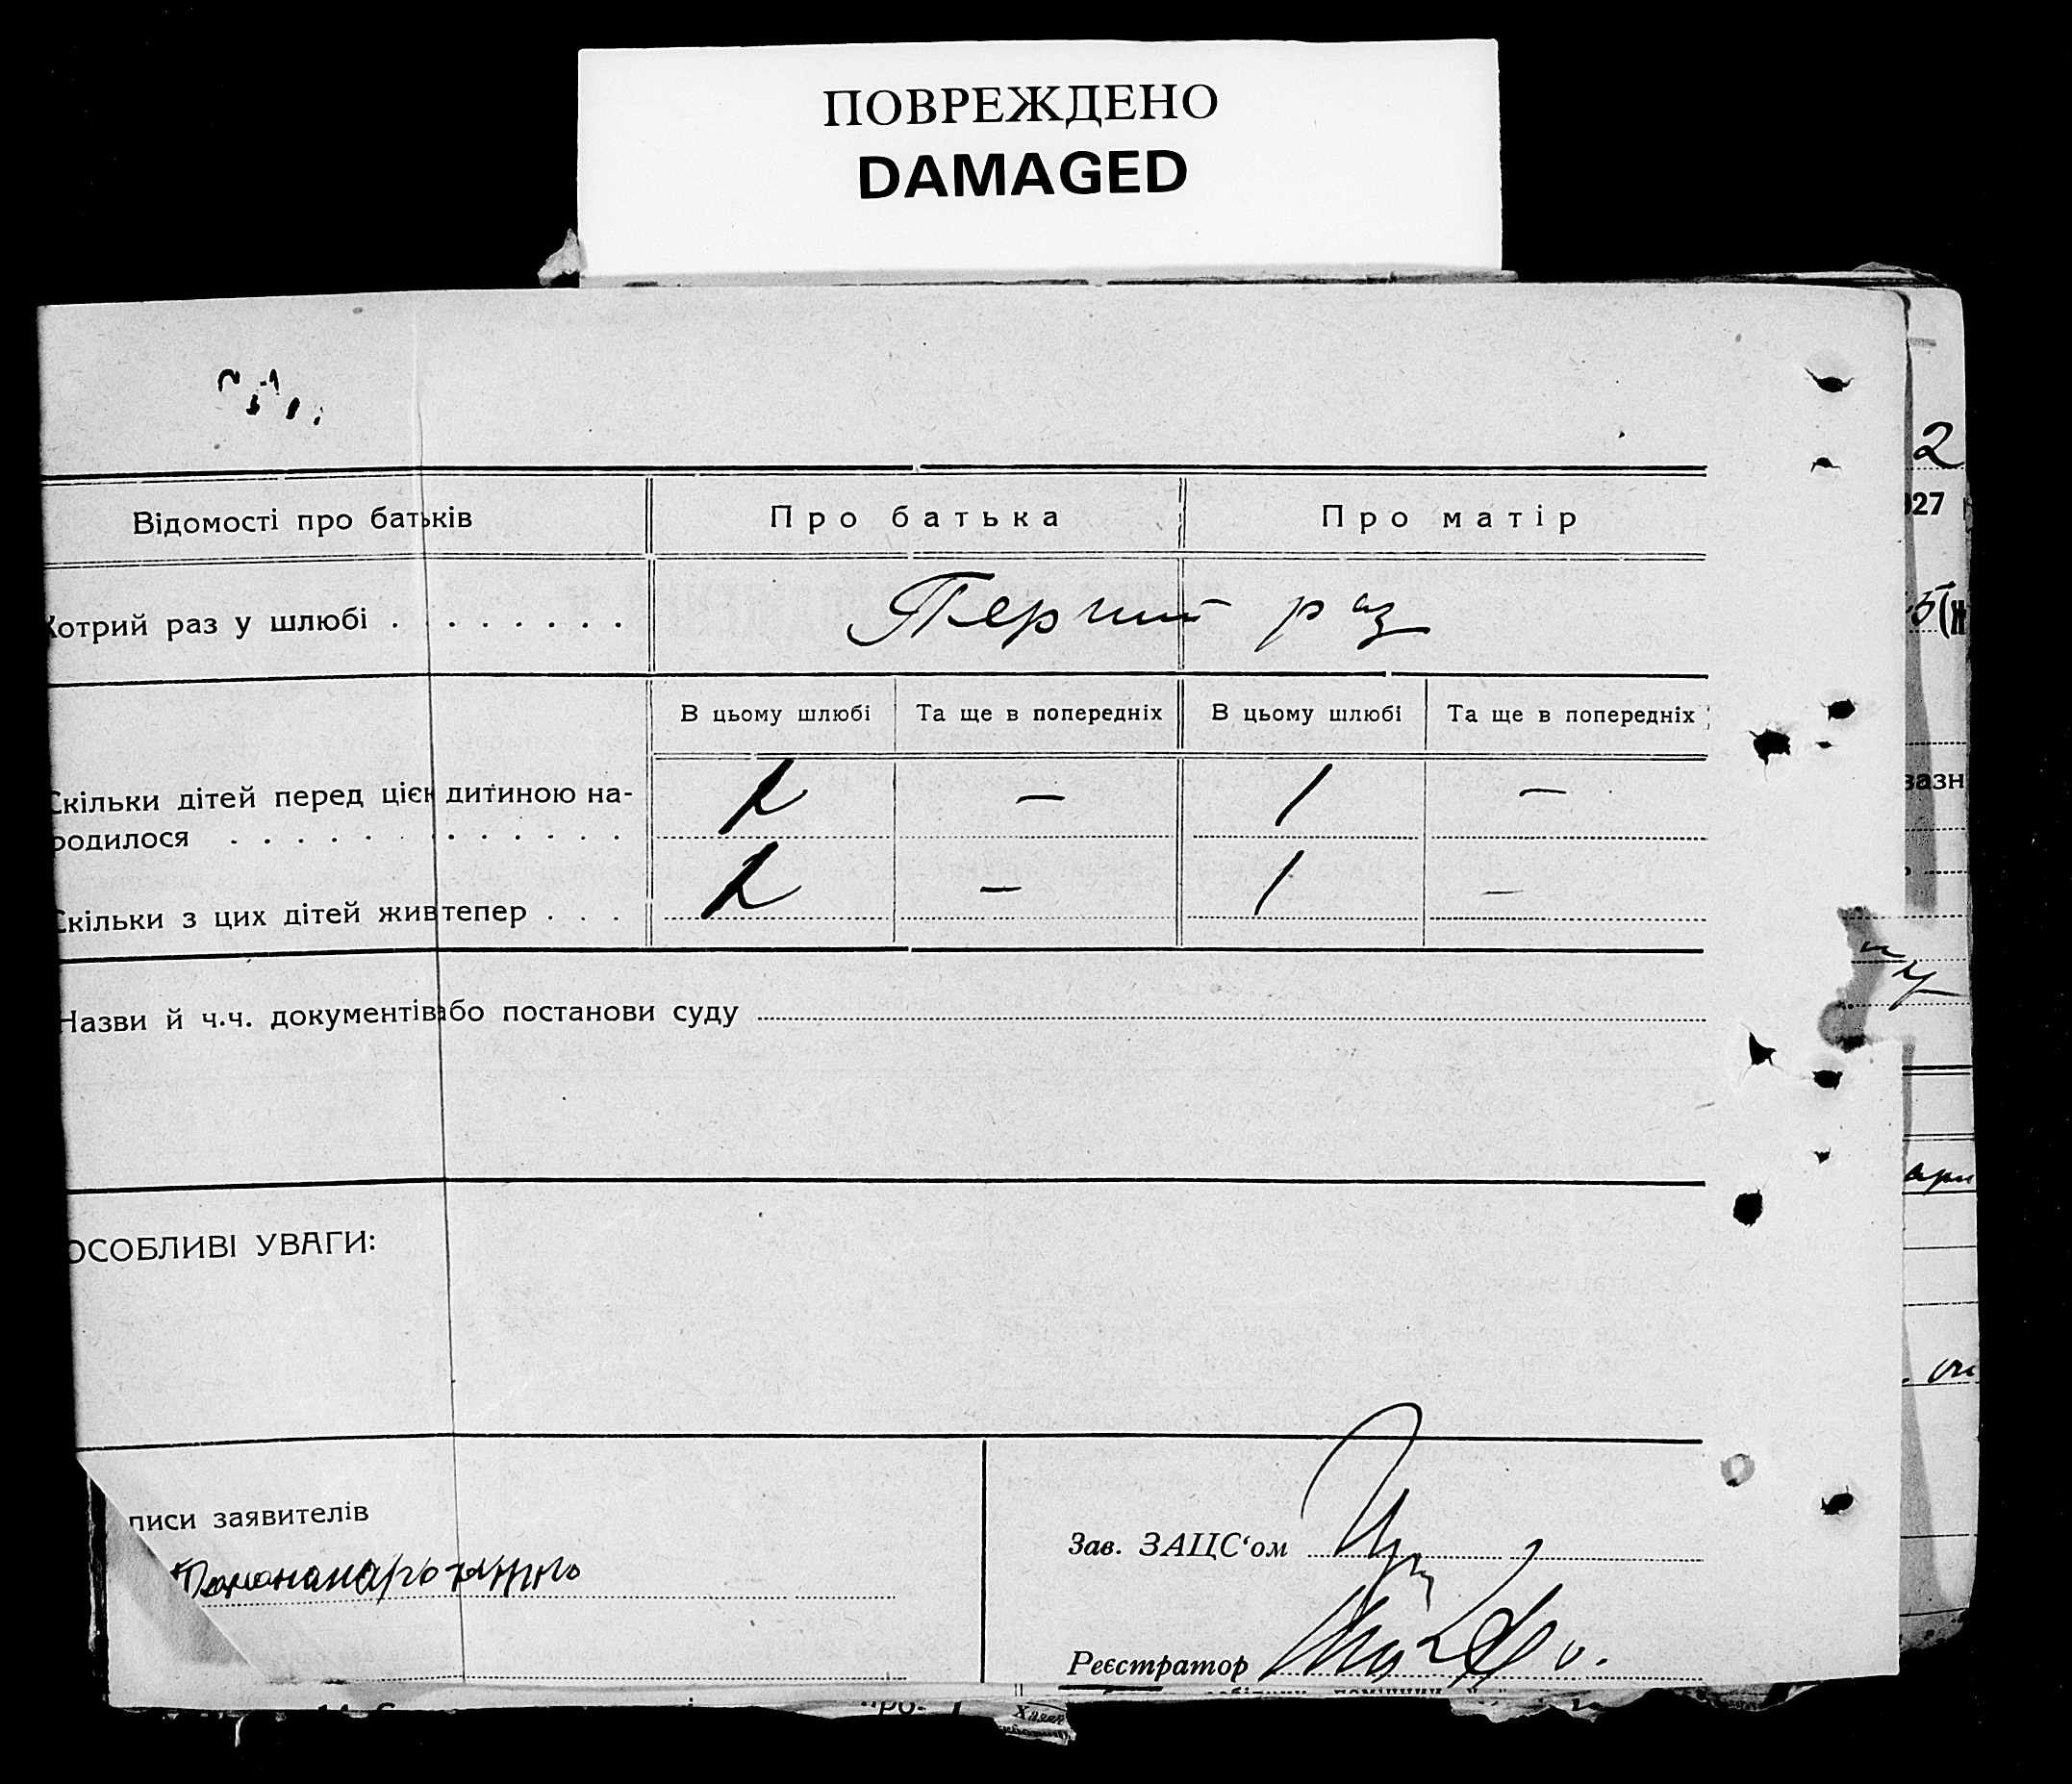 ПОВРЕЖДЕНО
DAMAGED
Відомості про батьків
Про батька
Про матір
Котрий раз у шлюбі
Перший раз
В цьому шлюбі
Та ще в попередніх
В цьому шлюбі
Та ще в попередніх
Скільки дітей перед цією дитиною на-
родилося
—
1
—
Скільки з цих дітей живі тепер
—
1
—
Назви й ч.ч. документів або постанови суду
ОСОБЛИВІ УВАГИ:
писи заявителів
Зав. ЗАЦС‘ом
Реєстратор
2
27